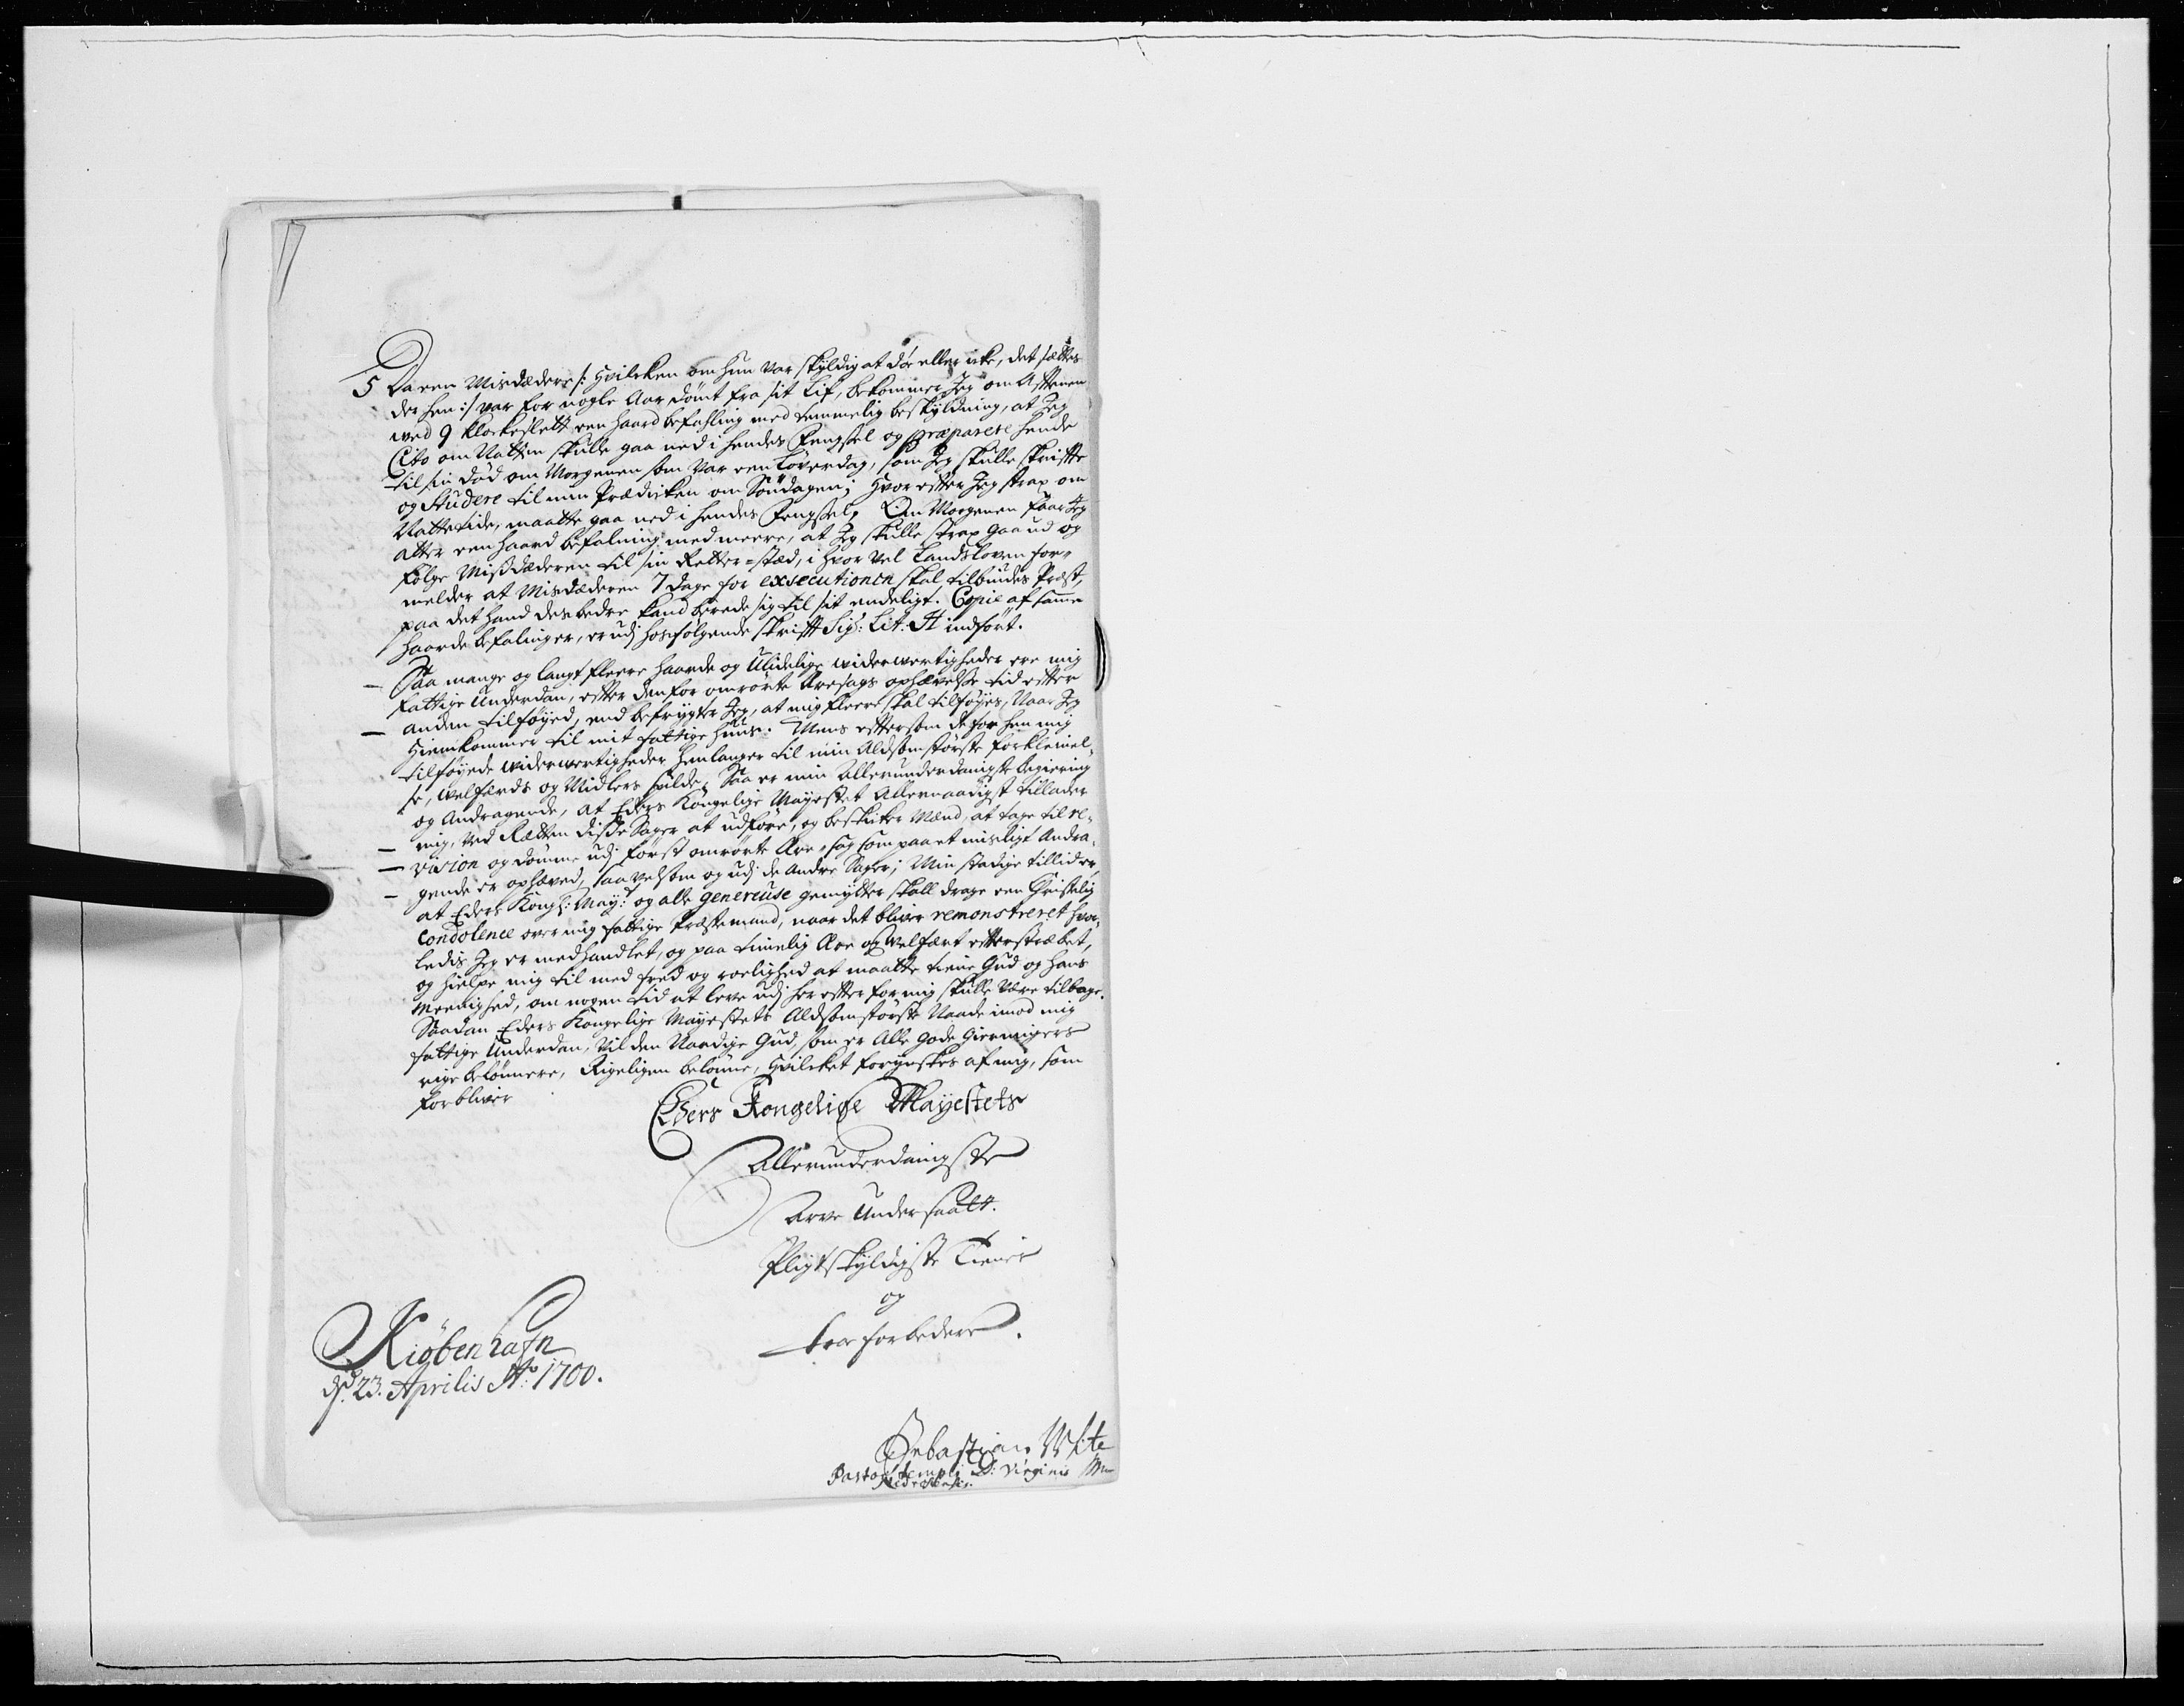 5 Da een Misdædere /: Hvilcken om hun var skyldig at döe eller icke, det sættes
der hen :/ var for nogle Aar dömt fra sit Lif, bekommer Jeg om Afftenen
ved 9 Klockeslett een haard befahling med temmelig beskyldning, at Jeg
Cito om Natten skulle gaa ned i hendes Fengssel og præparere hende
til sin död om Morgenen som var een Löverdag, som Jeg skulle skriffte
og studere til min Prædicken om Söndagen; Hvor effter Jeg strax om
Nattetide, maatte gaa ned i hendes Fengssel, Om Morgenen faar Jeg
atter een haard befalning med meere, at Jeg skulle strax gaa ud og
fölge Missdæderen til sin Retter-stæd, i hvor vel Landsloven for-
melder at Misdæderen 7 dage for exsecutionen skal tilbindes Præst,
paa det hand des bedre kand berede sig til sit endeligt. Copie af samme
haarde befalinger, er udj hosfölgende skrifft Sig: Lit: A indfört.
Saa mange og langt fleere haarde og Ulidelige widerwertigheder ere mig
fattige Underdan, effter den for omrörte Æresags ophævelse tid effter
anden tilföyed, end befrygter Jeg, at mig fleere skal tilföyes, Naar Jeg
Hiemkommer til mit fattige Huus. Mens effter som de for hen mig
tilföyede widerwertigheder henlanger til min Aldsomstörste forkleinel-
se, welfærds og Midlers spilde, Saa er min Allerunderdanigste begiering
og Andragende, at Eders Kongelige Mayestet Allernaadigst tillader
mig, ved Rætten disse Sager at udföre, og beskicker Mænd, at tage til re-
vision og dömme udj först omrörte Ære-sag som paa et misligt Andra-
gende er ophæved, saavelsom og udj de andre Sager; Min stadige tillid er,
at Eders Kongl: May:t og alle genereuse gemytter skall drage een Christelig
Condolence over mig fattige Præstemand, naar det bliver remonstreret hvor-
ledis Jeg er medhandlet, og paa timelig Ære og welfært effterstræbet,
og hielpe mig til med fred og roelighed at maatte tiene Gud og hans
Meenighed, om nogen tid at leve udj her effter for mig skulle være tilbage.
Saadan Eders Kongelige Mayestets Aldsomstörste Naade imod mig
fattige Underdan, vil den Naadige Gud, som er Alle gode Gierningers
rige belönnere, Rigeligen belönne, Hvilcket forynskes af mig, som
forbliver
Eders Kongelige Mayestets
Allerunderdanigste
Arve Undersaatt.
Pligtskyldigste Tiener
og
troe forbedere.
Kiöbenhafn
d. 23. Aprilis Ao 1700.
Sebastian
Pastor templi D: Virginis